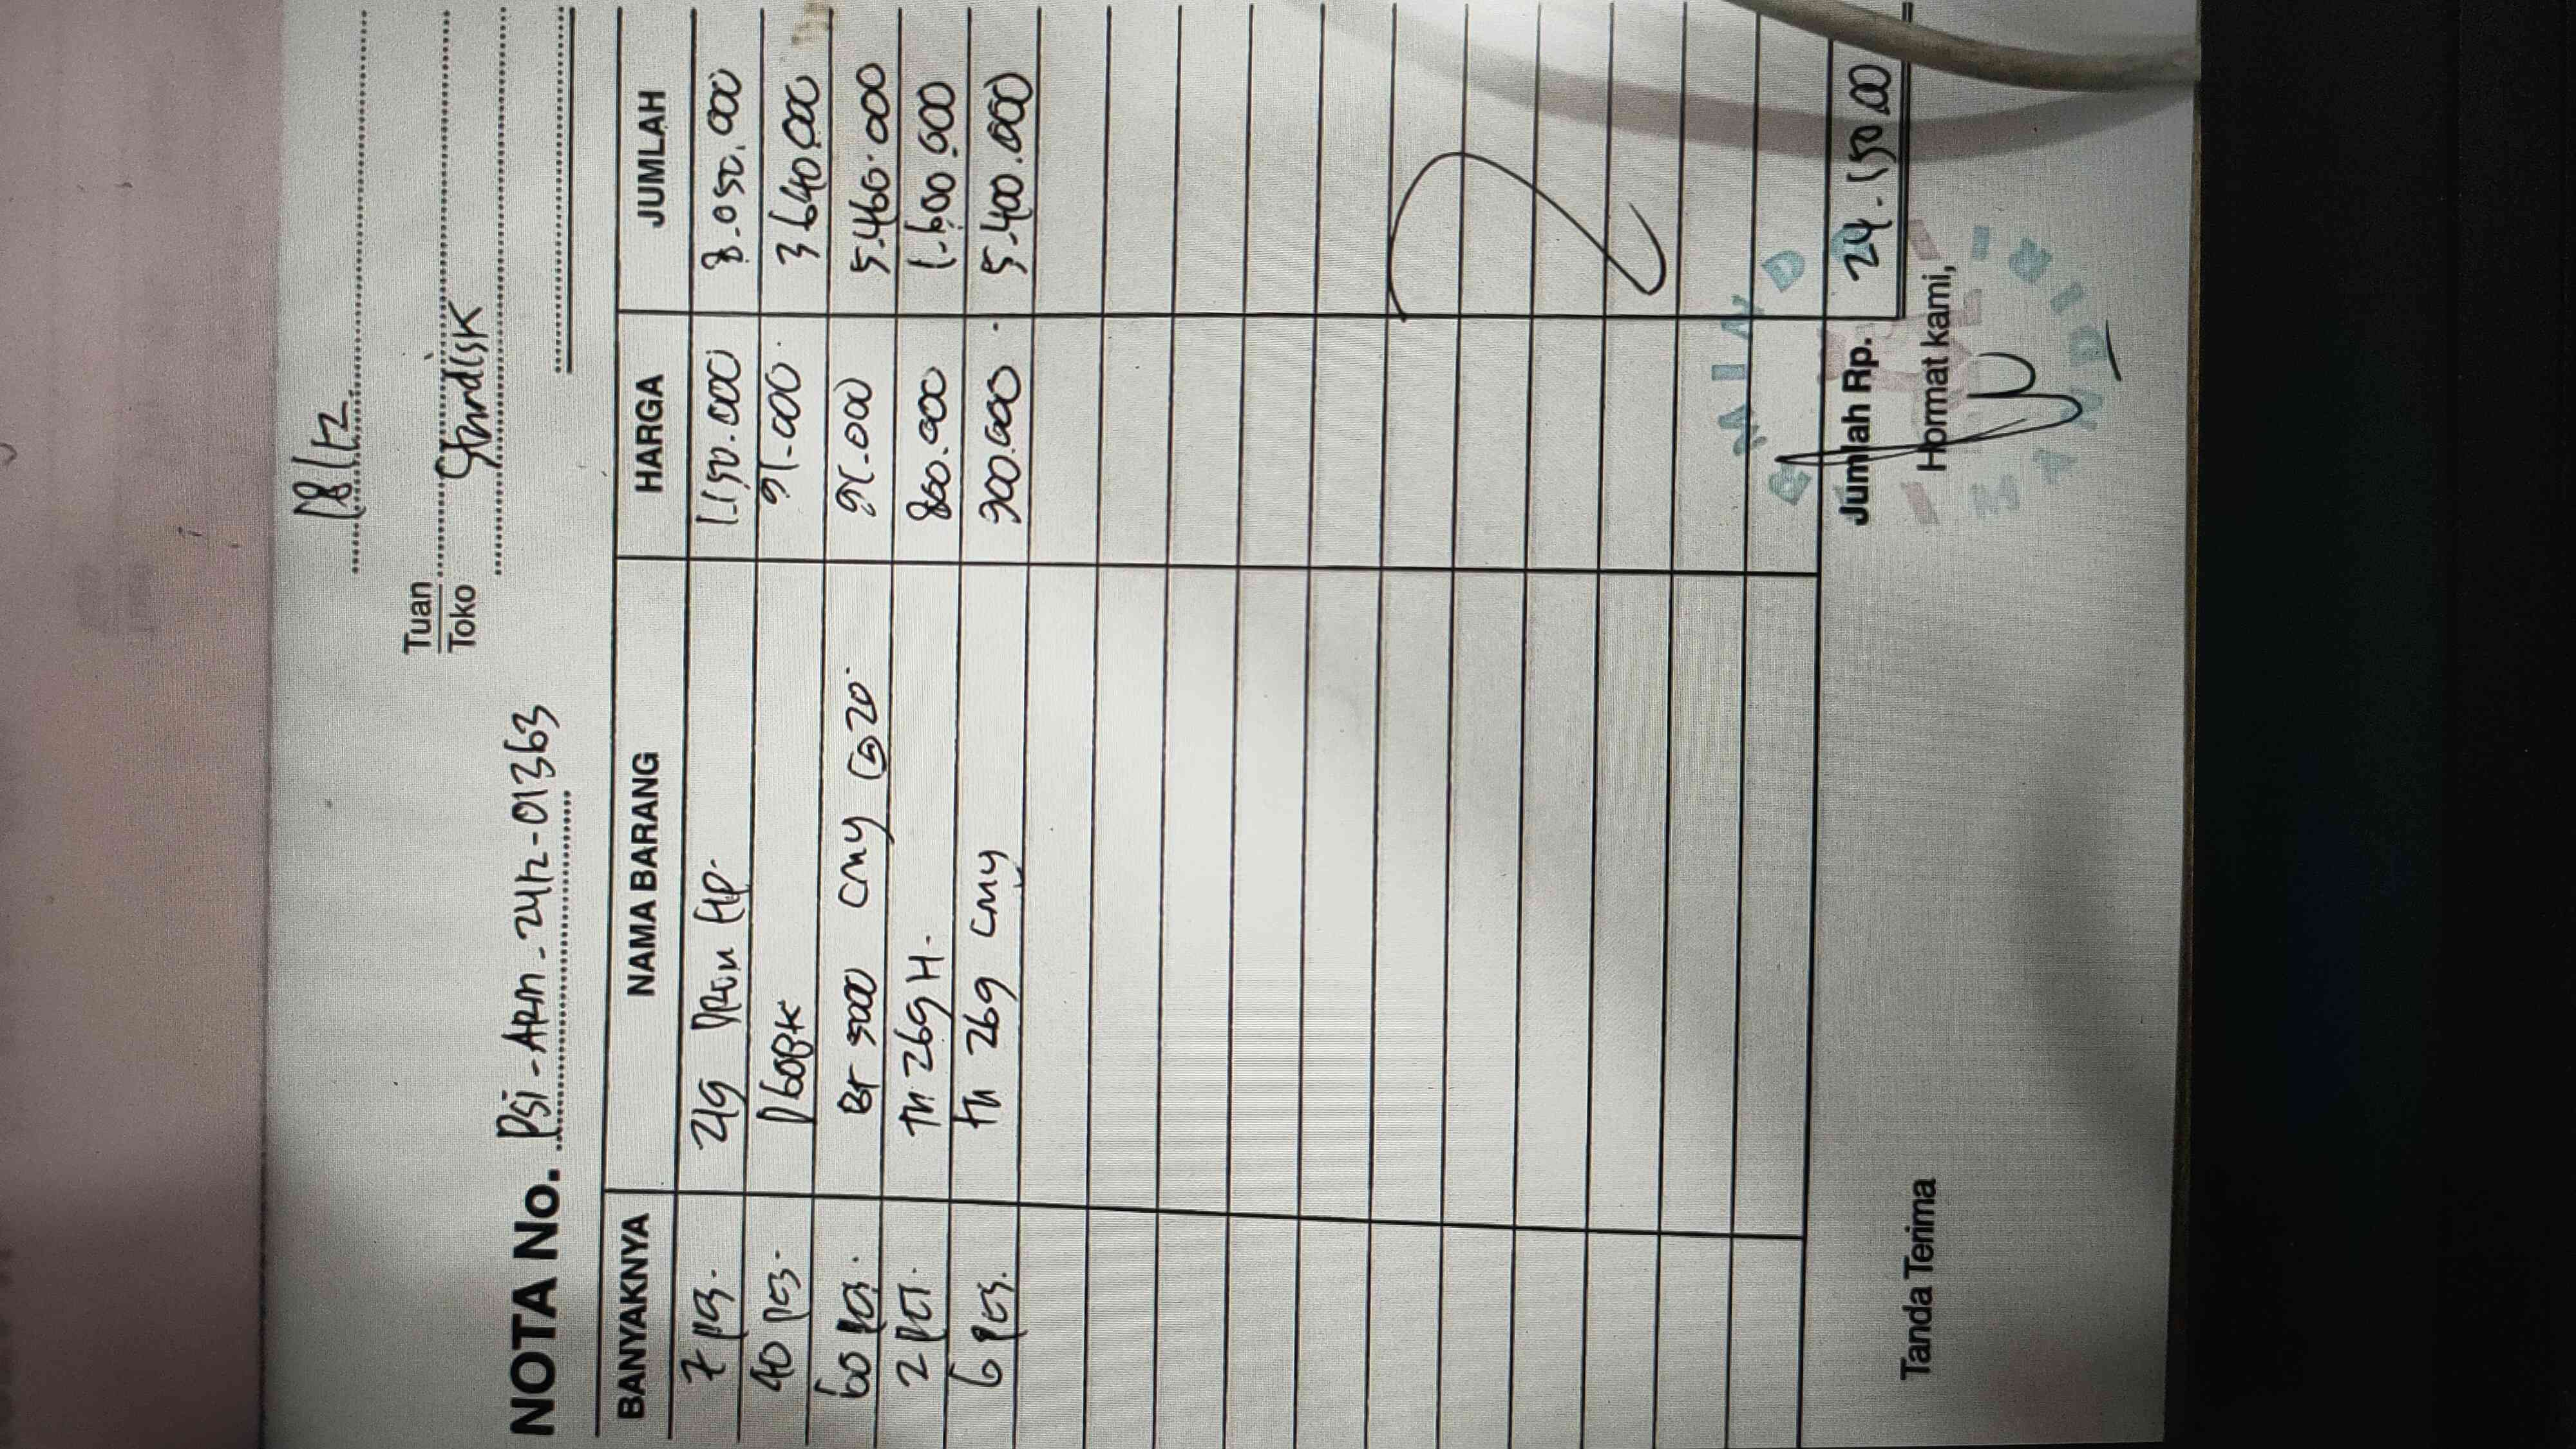 18/12
Tuan
Toko
Standisk
NOTA No. PSI-ARM-2412-01363
BANYAKNYA NAMA BARANG HARGA JUMLAH
7 pcs. 219 HP. 1.150.000 8.050.000
40 pcs. D60BK 91.000. 3640.000
60 pcs. BT 5000 CMY @20. 91.000 5.460.000
2 pcs. TN 269 H. 800.000 1.600.000
6 pcs. TN 269 CMY 900.000. 5.400.000
Jumlah Rp. 24.150.00
Tanda Terima Hormat kami,
MANDIRI